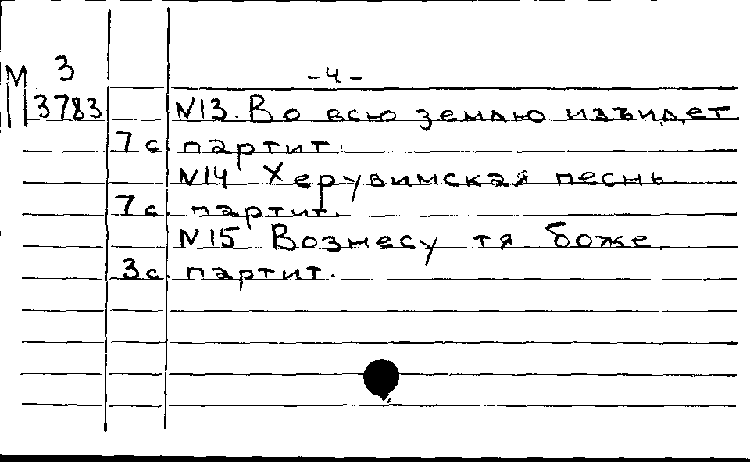 М 3
3783
-4-
N13. Во всю землю изъидет
7 с партит.
N14 Херувимская песнь
7 с. партит.
N15 Вознесу тя боже
3 с. партит.